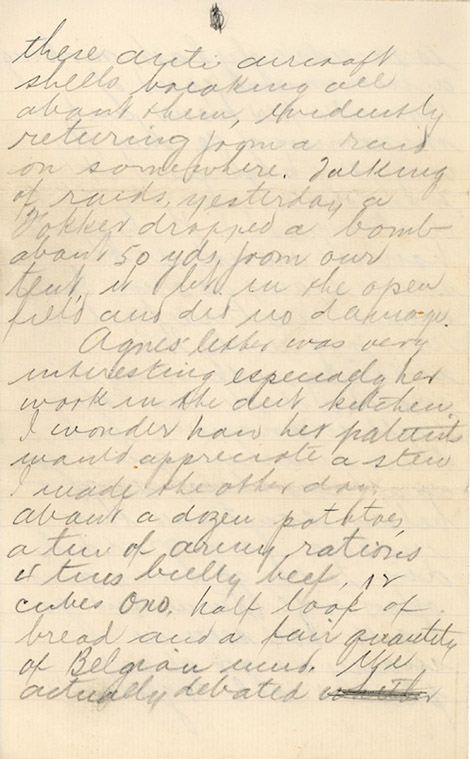 these anti aircraft
shells breaking all
about them, evidently
returning from a raid
on somewhere. Talking
of raids, yesterday a
Fokker dropped a bomb
about 50 yds, from our
tent, it lit in the open
field and did no damage.
Agnes' letter was very
interesting especially her
work in the diet kitchen.
I wonder how her patients
would appreciate a stew
I made the other day.
about a dozen potatoes,
a tin of army rations
4 tins bully beef, 12
cubes Oxo, half loaf of
bread and a fair quantity
of Belgian mud. We
actually debated whether